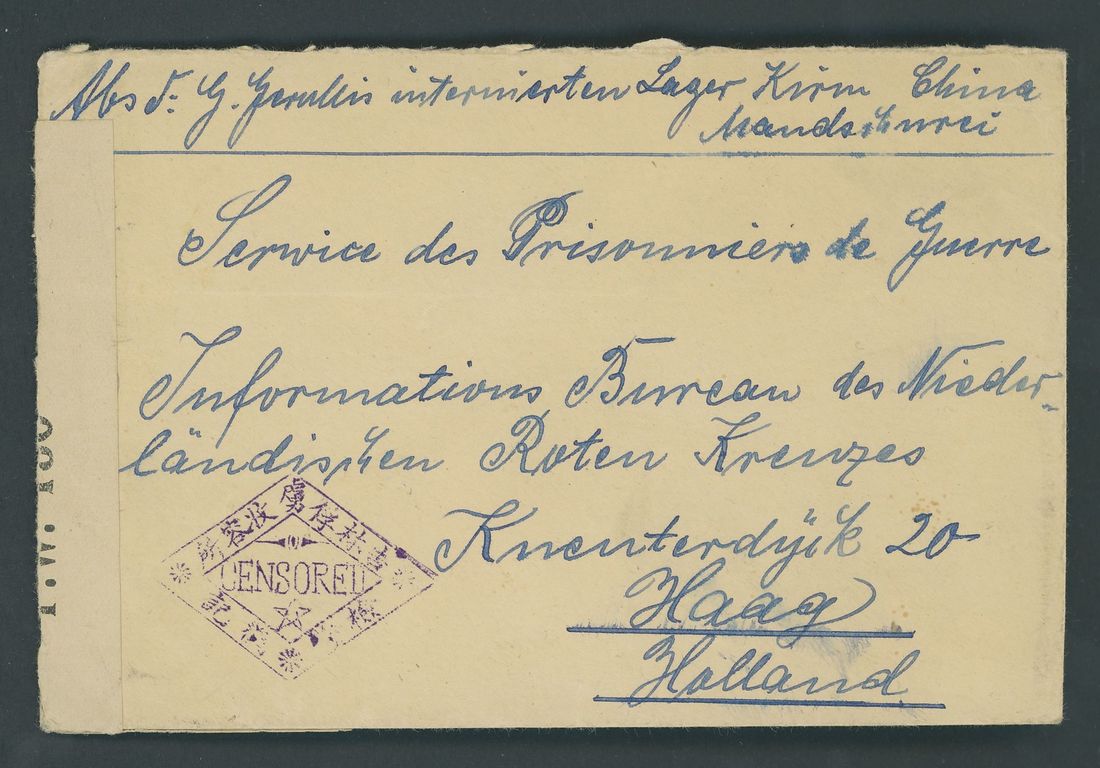 Abs d: G. Gerullis internierten Lager Kirin China
Mandschurei
Serwice des Prisonniers de Guerre
Informations Bureau des Nieder-
ländischen Roten Kreuzes
Kneuterdÿk 20
Haag
Holland
吉林俘虜收容所
CENSORED